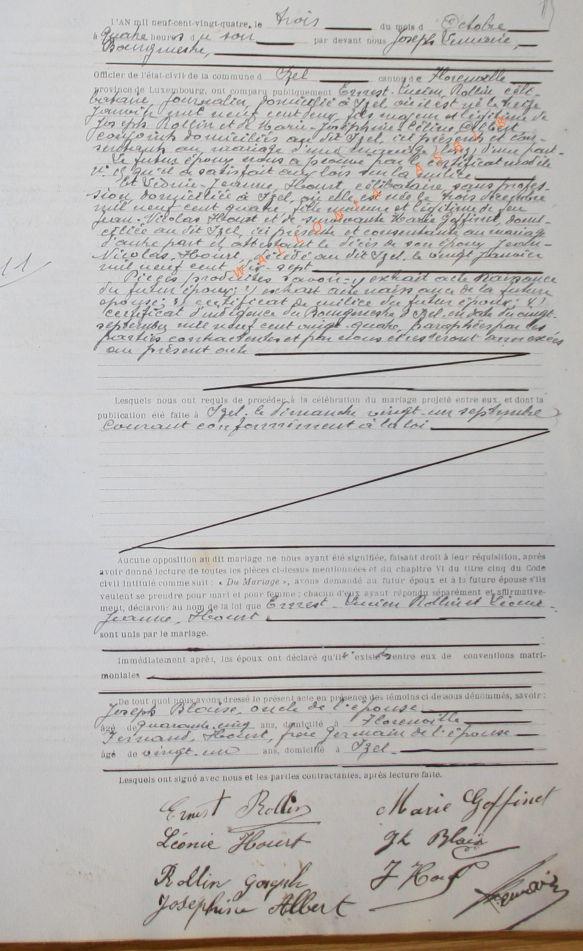 L'AN mil neuf-cent-vingt-quatre, le trois du mois d'Octobre
à quatre heures du soir par devant nous Joseph
Bourgmestre,
Officier de l'état-civil de la commune d'Izel canton de Florenville
province de Luxembourg, ont comparu publiquement Ernest-Lucien Rollin céli-
bataire, journalier, domicilié à Izel où il est né le treize
Janvier mil neuf cent deux, fils majeur et légitime de
Joseph Rollin et de Marie-Joséphine Albert
conjoints domiciliés au dit Izel, ici présents et con-
sentants au mariage d'une part
Le futur époux nous a prouvé par le certificat modèle
qu'il a satisfait aux lois sur la milice
Et Léonie-Jeanne, Hourt, célibataire, sans profes-
sion domiciliée à Izel, où elle est née le trois décembre
mil neuf cent quatre, fille mineure et légitime de feu
Jean-Nicolas Hourt et de survivante Marie Goffinet, domi-
ciliée au dit Izel, ici présente et consentante au mariage
d'autre part et attestant le décès de son époux Jean-
Nicolas, Hourt, décédé au dit Izel, le vingt Janvier
mil neuf cent dix-sept
Pièces produites savoir: 1) extrait acte naissance
du futur époux; 2) extrait acte naissance de la future
épouse; 3) certificat de milice du futur époux; 4)
certificat d'indigence du Bourgmestre d'Izel en date du vingt-
septembre mil neuf cent vingt-quatre, paraphées par les
parties contractantes et par nous et resteront annexées
au présent acte
Lesquels nous ont requis de procéder à la célébration du mariage projeté entre eux, et dont la
publication été faite à Izel, le dimanche vingt-un septembre
courant conformément à la loi
Aucune opposition au dit mariage ne nous ayant été signifiée, faisant droit à leur réquisition, après
avoir donné lecture de toutes les pièces ci-dessus mentionnées et du chapitre VI du titre cinq du Code
civil intitulé comme suit : « Du Mariage », avons demandé au futur époux et à la future épouse s'ils
veulent se prendre pour mari et pour femme ; chacun d'eux ayant répondu séparément et affirmative-
ment, déclarons au nom de la loi que Ernest-Lucien Rollin et Léonie-
Jeanne, Hourt
sont unis par le mariage.
Immédiatement après, les époux ont déclaré qu'il n'existe entre eux de conventions matri-
moniales
De tout quoi nous avons dressé le présent acte en présence des témoins ci-dessous dénommés, savoir :
Joseph oncle de l'épouse
âgé de quarante cinq ans, domicilié à Florenville
Fernand, Hourt, frère germain de l'épouse
âgé de vingt-un ans, domicilié à Izel
Lesquels ont signé avec nous et les parties contractantes, après lecture faite.
Ernest Rollin Marie Goffinet
Léonie Hourt
Rollin Joseph
Joséphine Albert
11